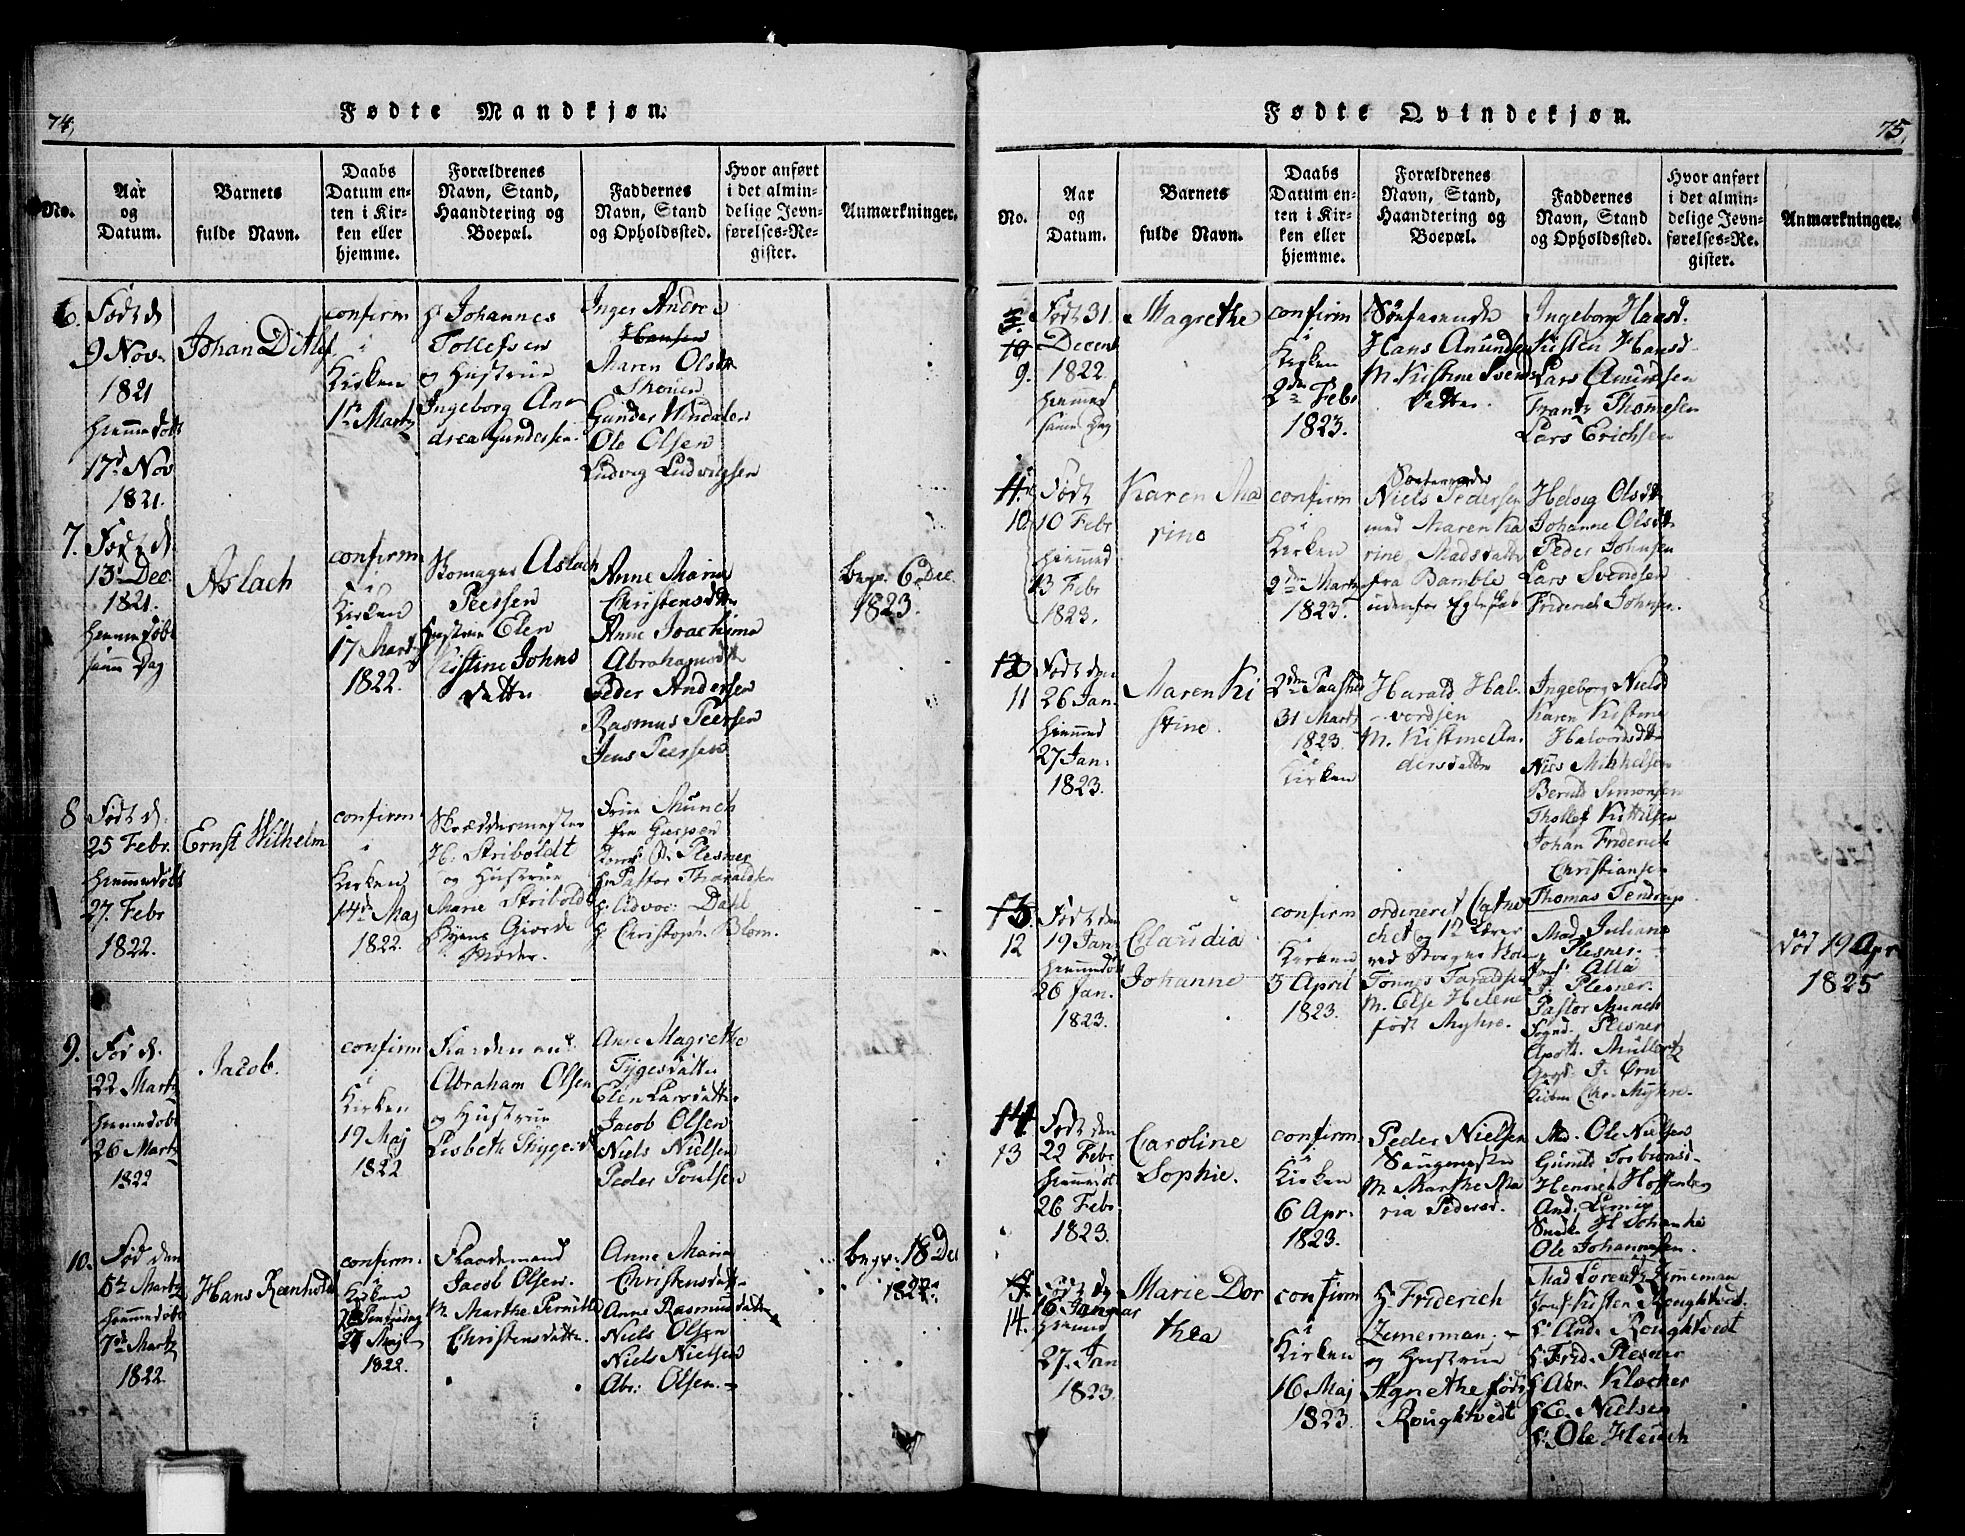 74,
Fødte Mandkjøn.
No.
Aar og Datum.
Barnets fulde Navn.
Daabs Datum enten i Kirken eller hjemme.
Forældrenes Navn, Stand, Haandtering og Boepæl.
Faddernes Navn, Stand og Opholdssted.
Hvor anført i det almindelige Jevnførelses-Register.
Anmærkninger.
6.
Født d
9 Nov.
1821
hjemmedøbt
17d Nov
1821.
Johan Ditlef
confirm
i
Kirken
1ste Martz
Hr Johannes
Tollefsen
og Hustrue
Ingeborg An
drea Gundersen
Inger Andrea
Hansen
Maren Olsdtr
Gunder
Ole Olsen
Ludvig Ludvigsen
7.
Født d
13 Dec.
1821.
hjemmedøbt
samme Dag
Aslach
confirm
i
Kirken
17 Martz
1822.
Skomager Aslach
Peersen
Hustrue Elen
Kistine Johns
datter
Anne Maria
Christensdtr
Anne Joachima
Abrahamsdtr
Peder Andersen
Rasmus Peersen
Jens Peersen
begr. 6 Dec.
1823.
8
Født d.
25 Febr.
hjemmedøbt
27. Febr
1822.
Ernst Wilhelm
confirm.
i
Kirken
14de Maj
1822.
Skreddermester
H. Striboldt
og Hustrue
Marie Striboldt
Byens Giorde
Moder.
Frue Munch
fra
Plesner
Hr Pastor
Hr Advoc: Dahl
Hr Christoph. Blom.
9.
Fød d.
22 Martz
hjemmedøbt
26 Martz
1822
Jacob.
confirm
i
Kirken
19 Maj
1822
Abraham Olsen
og Hustrue
Lisbeth
Anne Magrethe
Tygesdatter
Elen Larsdatter
Jacob Olsen
Niels Nielsen
Peder Poulsen
10.
Fød den
5te Martz
hjemmedøbt
7de Martz
1822.
Hans Reenholdt
confirm.
i
Kirken
27 Maj
1822.
Jacob Olsen.
M. Marthe Pernille
Christensdatter
Anne Maria
Christensdatter
Anne Rasmusdatter
Niels Olsen
Niels Nielsen
Abr: Olsen.
begr. 18 Dec
1822.
75,
Fødte Qvindekjøn.
No.
Aar og Datum.
Barnets fulde Navn.
Daabs Datum enten i Kirken eller hjemme.
Forældrenes Navn, Stand, Haandtering og Boepæl.
Faddernes Navn, Stand og Opholdssted.
Hvor anført i det almindelige Jevnførelses-Register.
Anmærkninger.
10
9.
Født 31.
Decem
1822.
hjemmed
samme Dag
Magrethe
confirm
i
Kirken
2den Febr
1823.
Søefarende
Hans Amundsen
M. Kistine Svends
datter.
Ingeborg Hansd.
Kisten Hansd
Lars Amundsen
Frantz Thomesen
Lars Erichsen
11.
10
Født
10 Febr
hjemmed
13 Febr
1823.
Karen Ma
rine
confirm
i
Kirken
2den Martz
1823.
Søefarende
Niels Pedersen
med Maren Ka
rine Madsdatter
fra Bamble
udenfor Egteskab
Helvig Olsdtr
Johanne Olsdtr
Peder Johnsen
Lars Svendsen
Friderich Johnsen.
12
11
Født den
26 Jan.
hjemmed
27 Jan.
1823.
Maren Ki
stine.
2den Paaskedag
31 Martz
1823.
i
Kirken
Harald Hal
vordsen
M. Kistine An
dersdatter
Ingeborg Nielsd
Karen Kistine
Halvorsdtr
Niels Mikkelsen
Bernd Simonsen
Thollef Kittilsen
Johan Friderich
Christiansen
13
12
Født den
19 Jan.
hjemmedøbt
26 Jan.
1823.
Claudia
Johanne
confirm
i
Kirken
3 April
1823.
ordineret Cathe
chet og 1ste Lærer
ved Borger Skolen
Tønnes Taraldsen
M. Else Helene
født Myhre.
Thomas Tendrup
Mad. Juliane
Plesner.
Plesner.
Pastor Munch
Plesner
Apoth. Müllertz
J. Ørn
Chr. Myhre.
død 19 Apr
1825
14
13
Født den
22 Febr
hjemmedøbt
26 Febr.
1823.
Caroline
Sophie.
confirm.
i
Kirken
6 Apr.
1823.
Peder Nielsen
Saugemester
M. Marthe Ma
ria Pedersd.
Mad. Ole Nielsens
Gunild Torbiørnsd.
Henrich Hoffenberg
And.
Ole Johannesen.
14.
Født d
16 Januar
hjemmed
27. Jan
1823.
Marie Dor
thea
confirm
i
Kirken
16 Maj
1823.
Hr Friderich
Zimerman.
og Hustrue
Agnethe født
Roughtvedt
Mad Lorentz Zimmeman
Jomf Kisten Roughtvedt.
Hr And. Roughtvedt
Hr Frid. Plesner
Hr Abr. Kløcker
Hr E. Nielsen
Hr Ole Fleuch